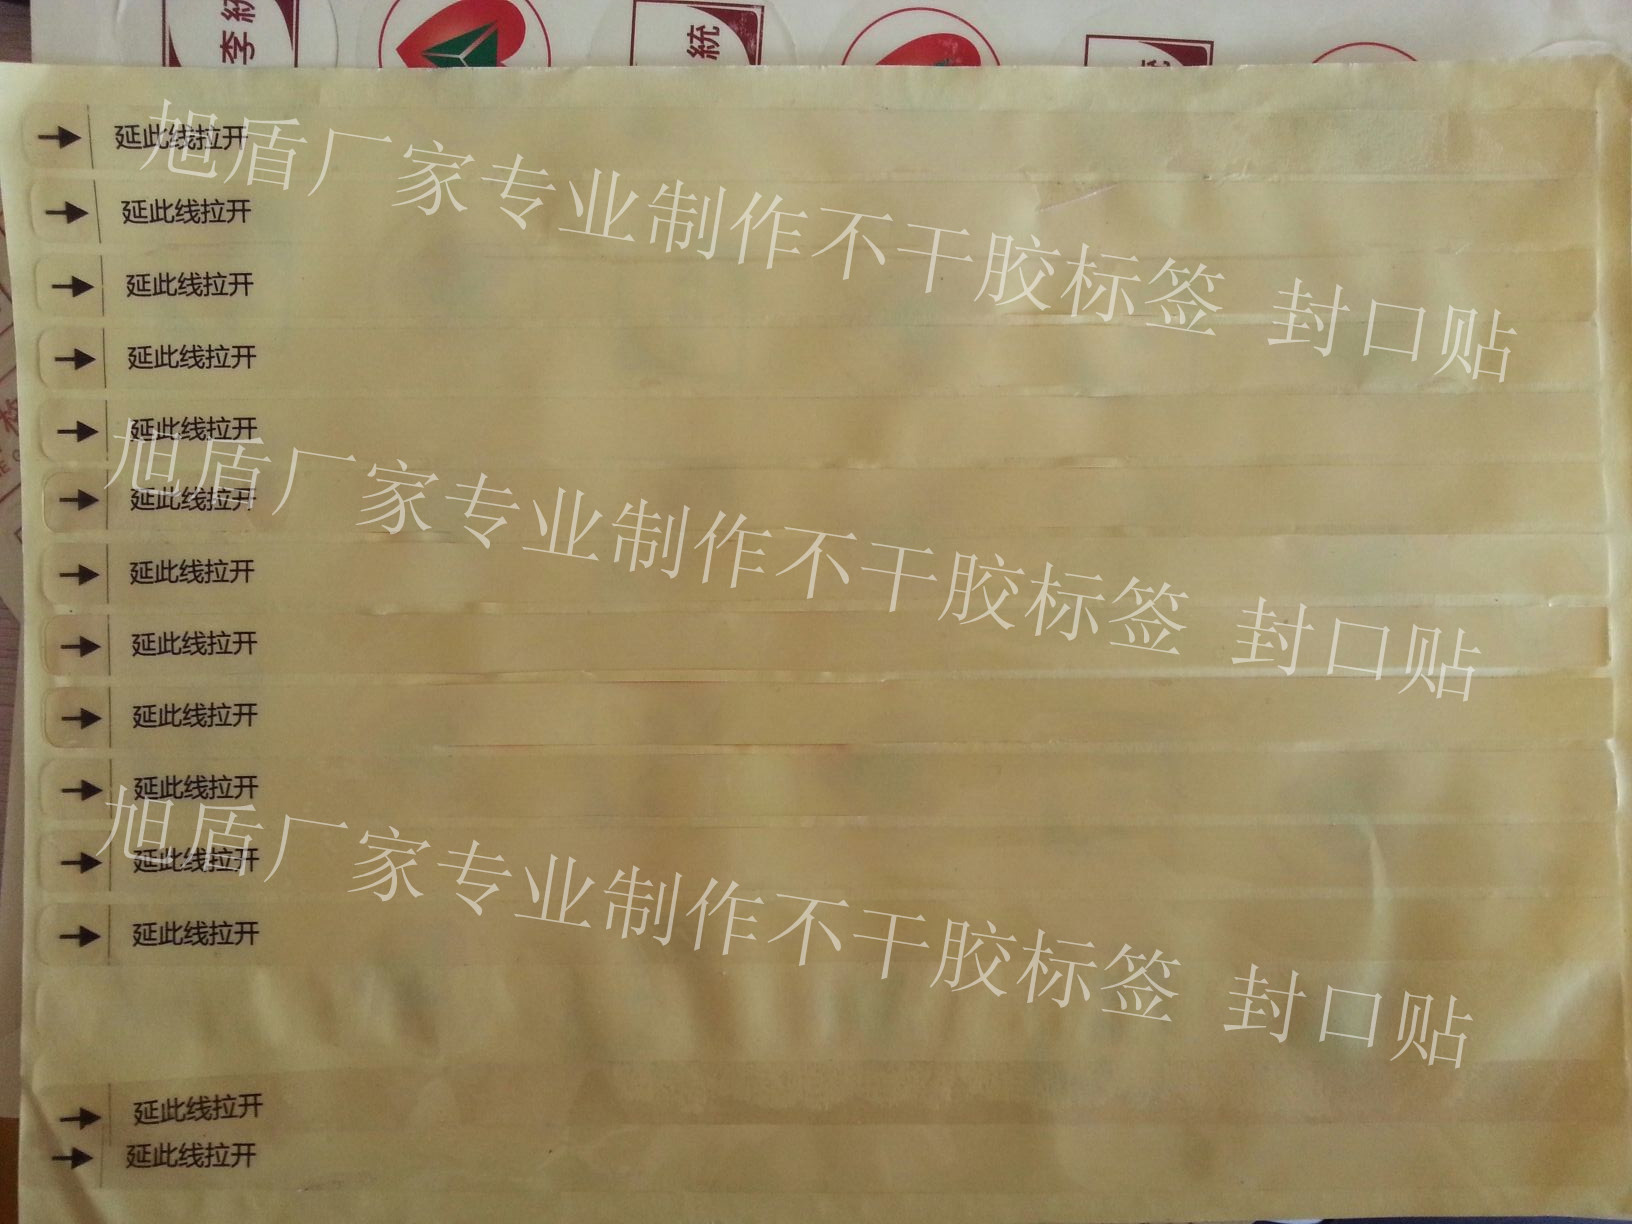 李統
統
延此线拉开
旭盾厂家专业制作不干胶标签 封口贴
延此线拉开
延此线拉开
延此线拉开
延此线拉开
旭盾厂家专业制作不干胶标签 封口贴
延此线拉开
延此线拉开
延此线拉开
延此线拉开
延此线拉开
旭盾厂家专业制作不干胶标签 封口贴
延此线拉开
延此线拉开
延此线拉开
延此线拉开